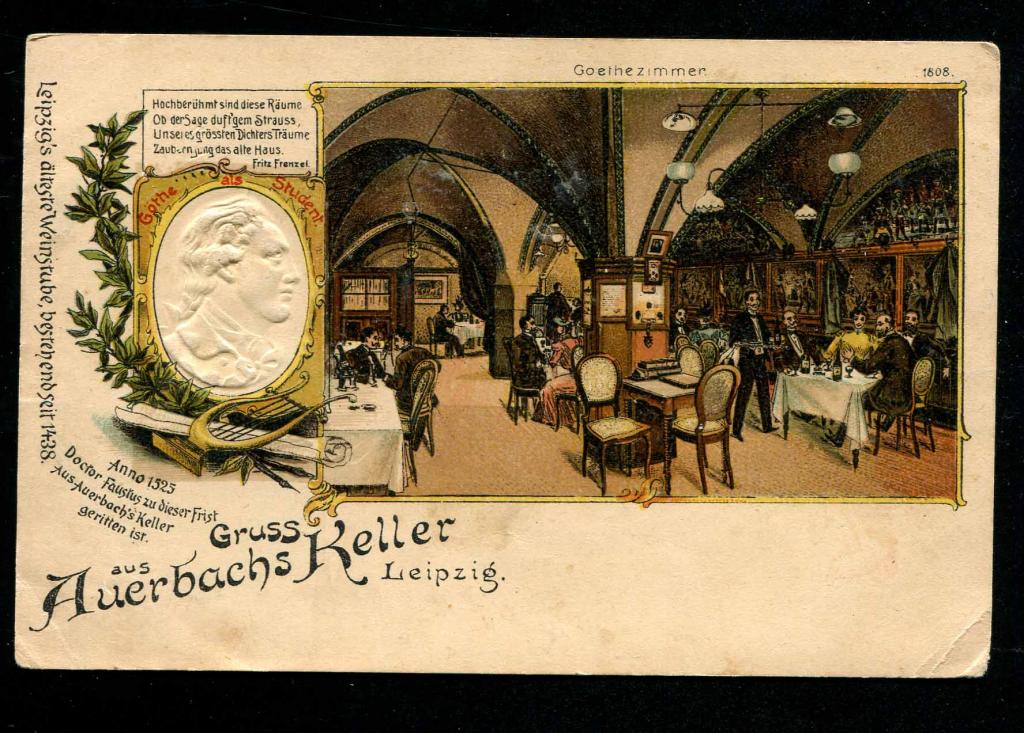 Goethezimmer
1808.
Leipzig's älteste Weinstube, bestehend seit 1438.
Hochberühmt sind diese Räume
Ob der Sage duft'gem Strauss,
Unseres grössten Dichters Träume
Zaubern jung das alte Haus.
Fritz Frenzel.
Göthe als Student
Anno 1525
Doctor Faustus zu dieser Frist
Aus Auerbach's Keller
geritten ist.
Gruss
aus
Auerbachs Keller
Leipzig.